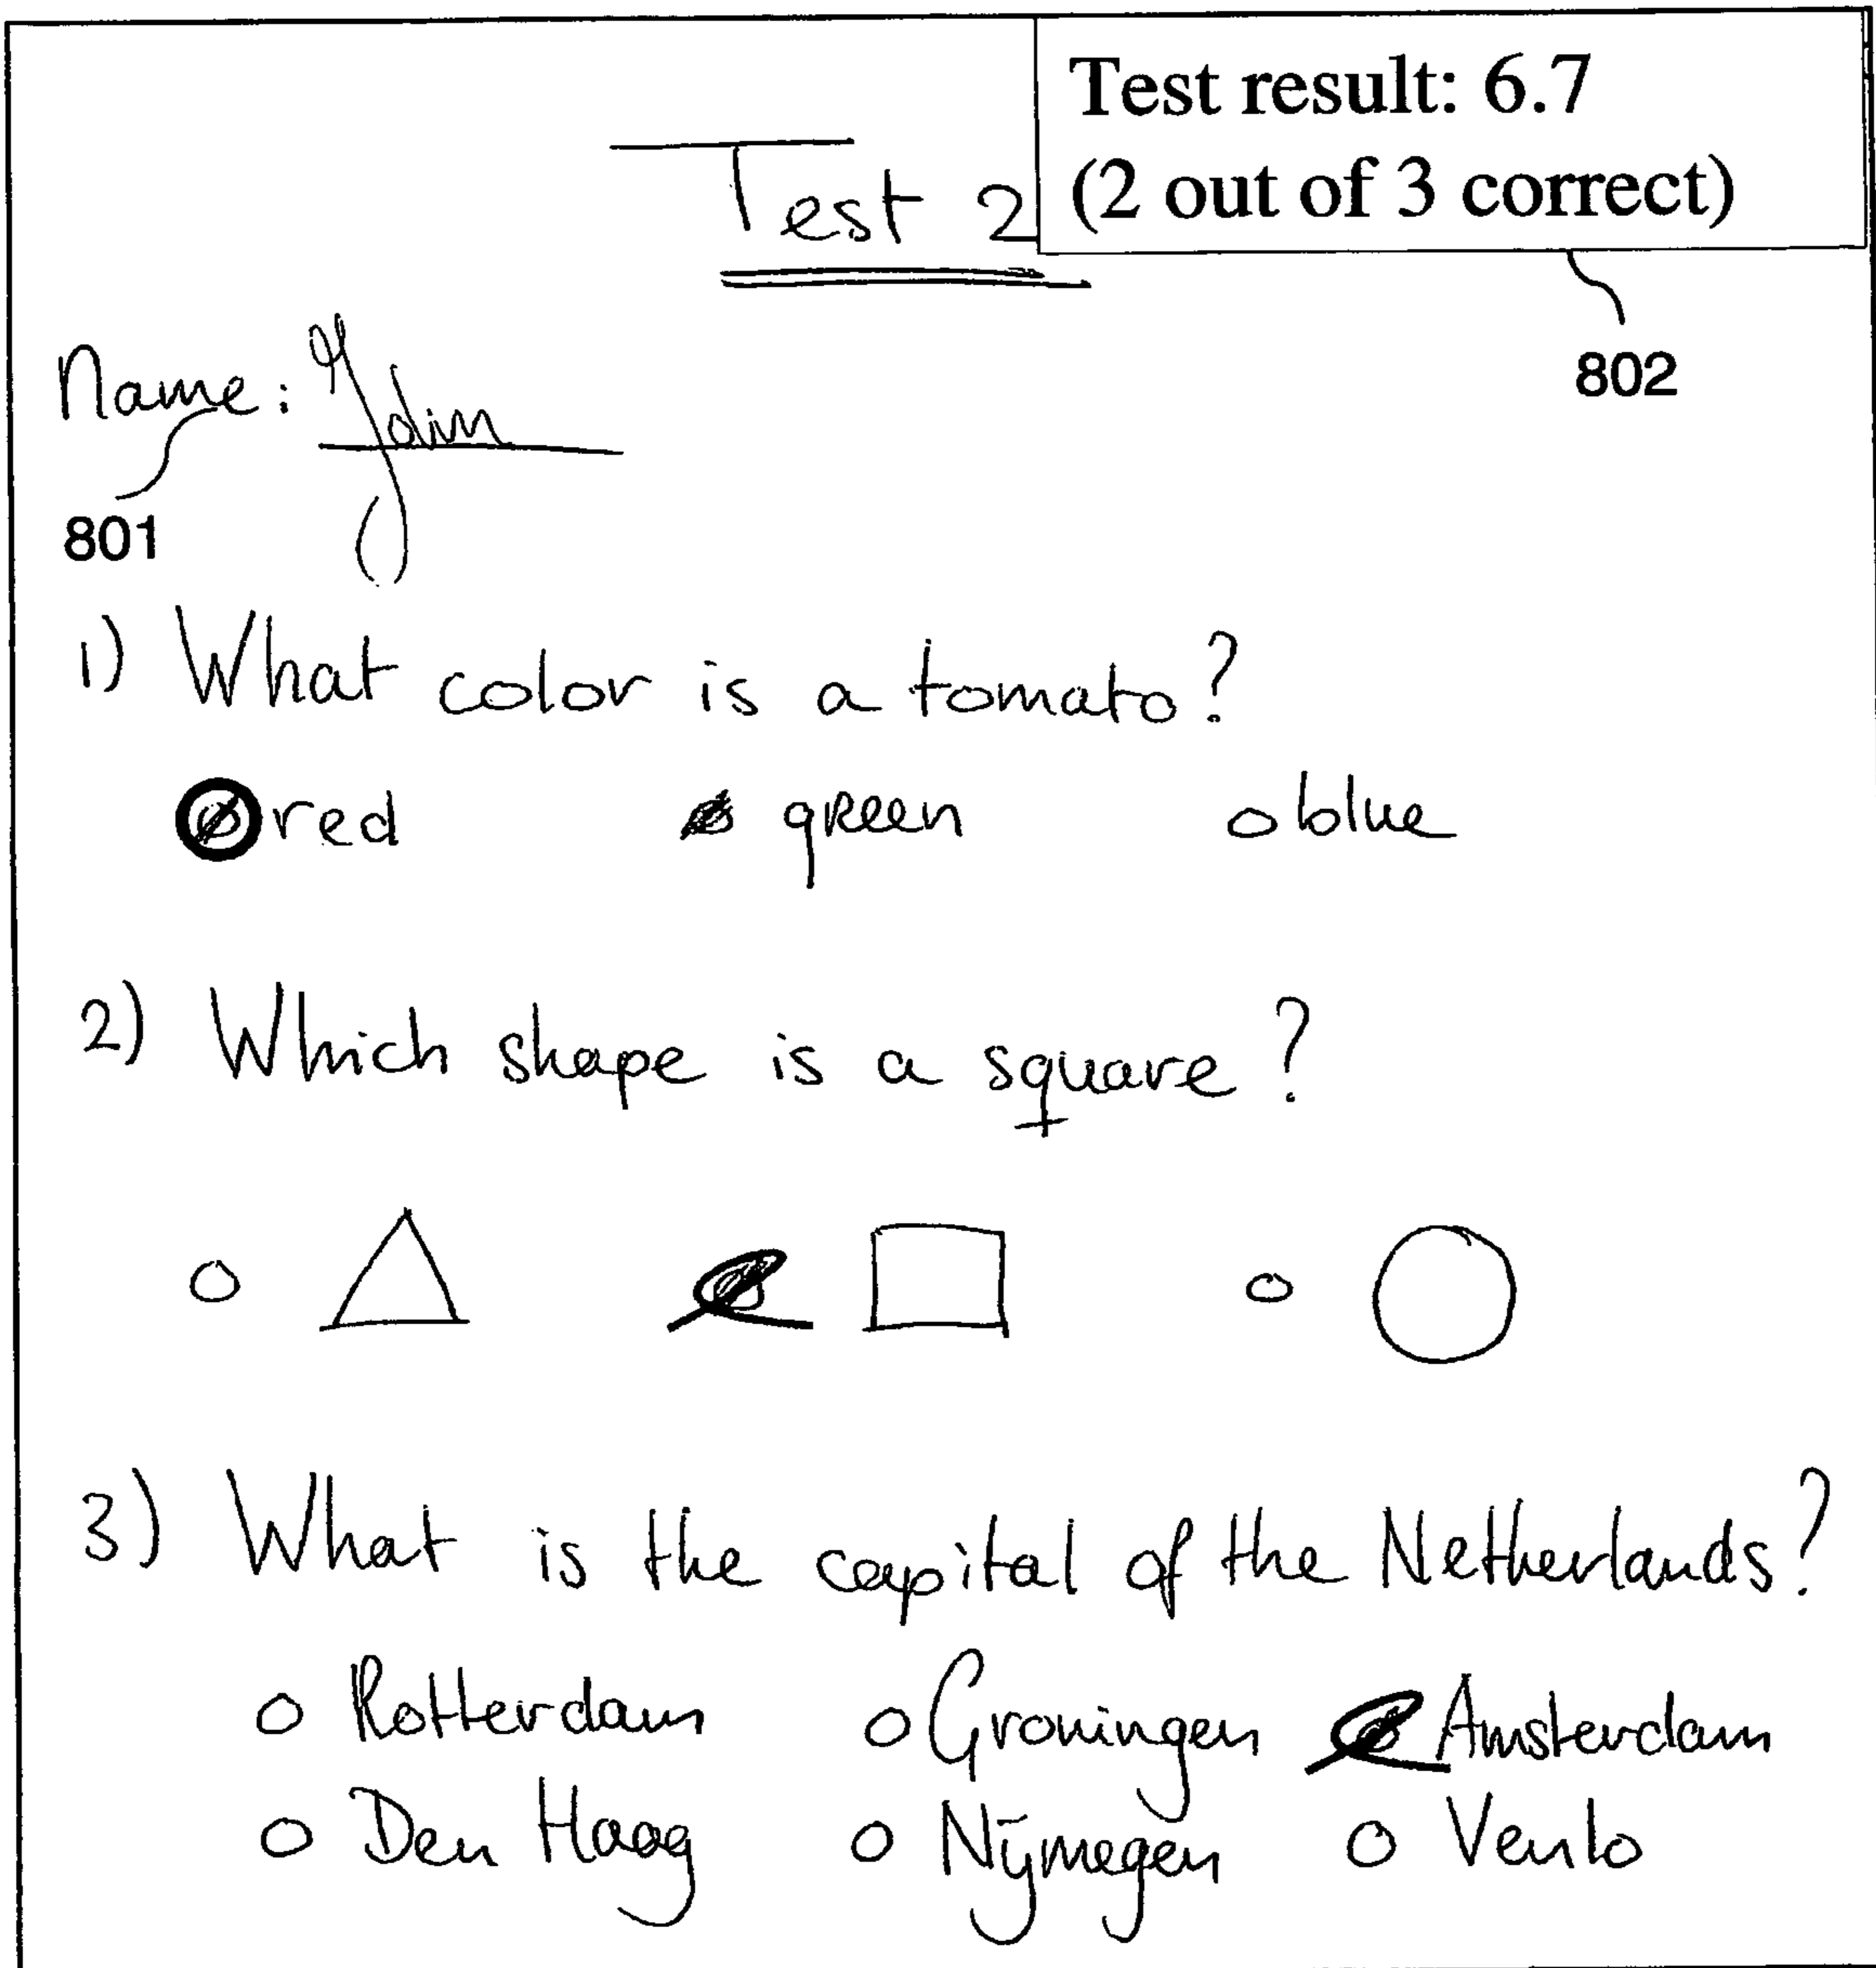 Test result: 6.7
(2 out of 3 correct)
Test 2
802
Name: John
801
1) What color is a tomato?
red green blue
2) Which shape is a square?
3) What is the capital of the Netherlands?
Rotterdam Groningen Amsterdam
Den Haag Nijmegen Venlo